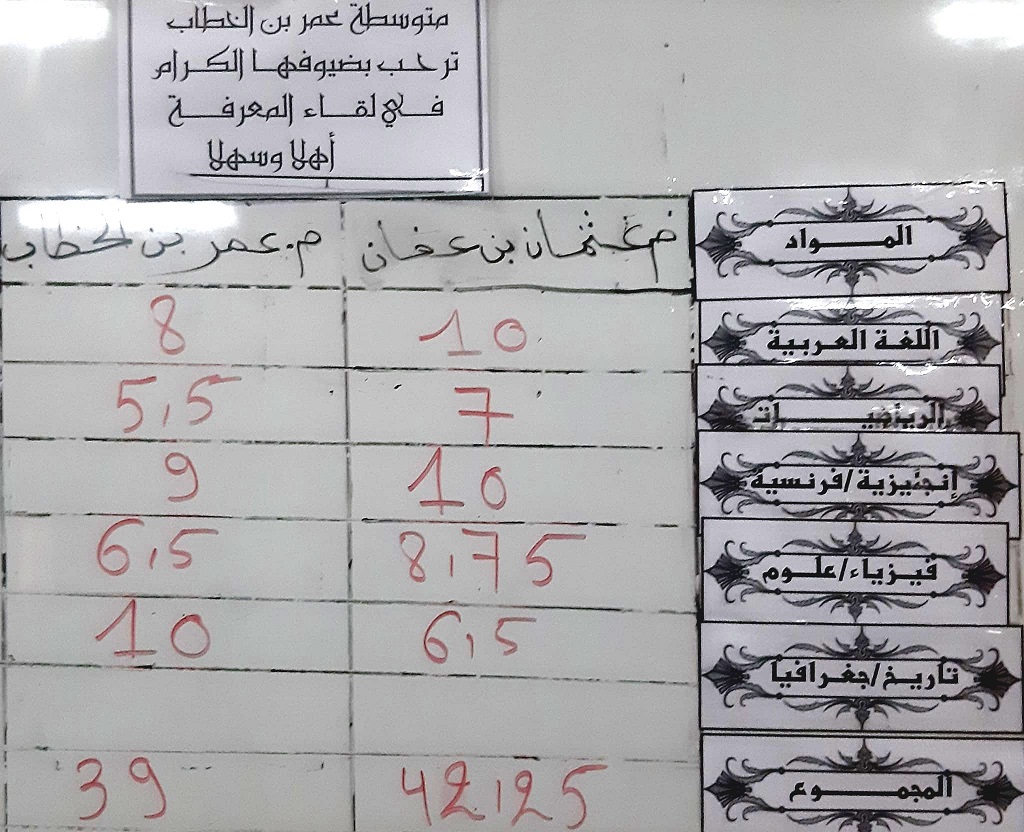 متوسطة عمر بن الخطاب
ترحب بضيوفها الكرام
في لقاء المعرفة
أهلا وسهلا
المواد م.عثمان بن عفان م.عمر بن الخطاب
اللغة العربية 10 8
الرياضيات 7 5,5
إنجليزية/فرنسية 10 9
فيزياء/علوم 8,75 6,5
تاريخ/جغرافيا 6,5 10
المجموع 42,25 39